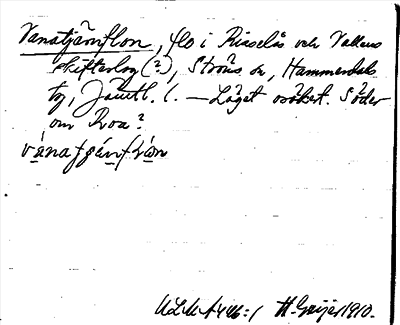 Vanatjärnflon, flo i Risselås och Vallens
skifteslag (?), Ströms sn, Hammerdals
tg, Jämtl. l. — Läget osäkert. Söder
om Roa?
vánatjánflón
ULMA 446:1 H. Geijer 1910.